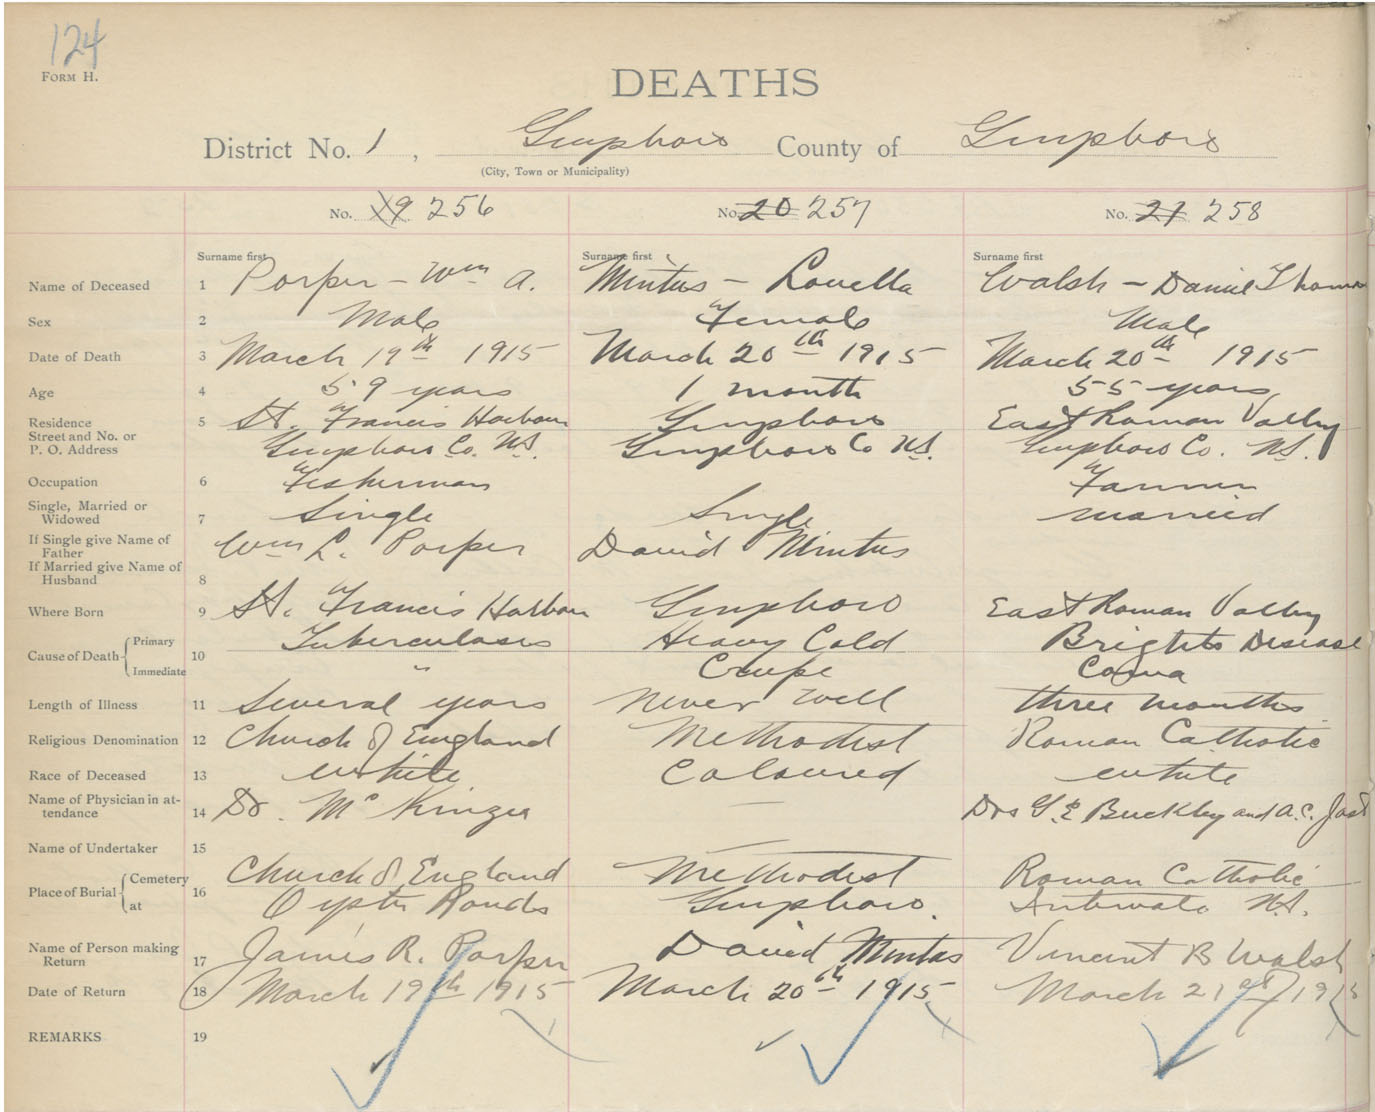 124
FORM H.
DEATHS
District No. 1, Guysboro County of Guysboro
(City, Town or Municipality)
No. 19 256 No. 20 257 No. 21 258
Surname first Surname first Surname first
Name of Deceased 1 Porper - Wm A. Mintus - Louella Walsh - Daniel Thomas
Sex 2 Male Female Male
Date of Death 3 March 19th 1915 March 20th 1915 March 20th 1915
Age 4 59 years 1 month 55 years
Residence 5 St. Francis Harbour Guysboro East Roman Valley
Street and No. or
P. O. Address Guysboro Co. N.S. Guysboro Co N.S. Guysboro Co. N.S.
Occupation 6 Fisherman Farmer
Single, Married or
Widowed 7 Single Single married
If Single give Name of
Father Wm L. Porper David Mintus
If Married give Name of
Husband 8
Where Born 9 St. Francis Harbour Guysboro East Roman Valley
Cause of Death Primary 10 Tuberculosis Heavy Cold Brights Disease
Immediate " Croupe Coma
Length of Illness 11 Several years Never well three months
Religious Denomination 12 Church of England Methodist Roman Catholic
Race of Deceased 13 white Coloured white
Name of Physician in at-
tendance 14 Dr. Mc — Drs G.E Buckley and A.C. Jost
Name of Undertaker 15
Place of Burial Cemetery 16 Church of England Methodist Roman Catholic
at Oyster Ponds Guysboro. Intervale N.S.
Name of Person making
Return 17 James R. Porper David Mintus Vincent B Walsh
Date of Return 18 March 19th 1915 March 20th 1915 March 21st 1915
REMARKS 19